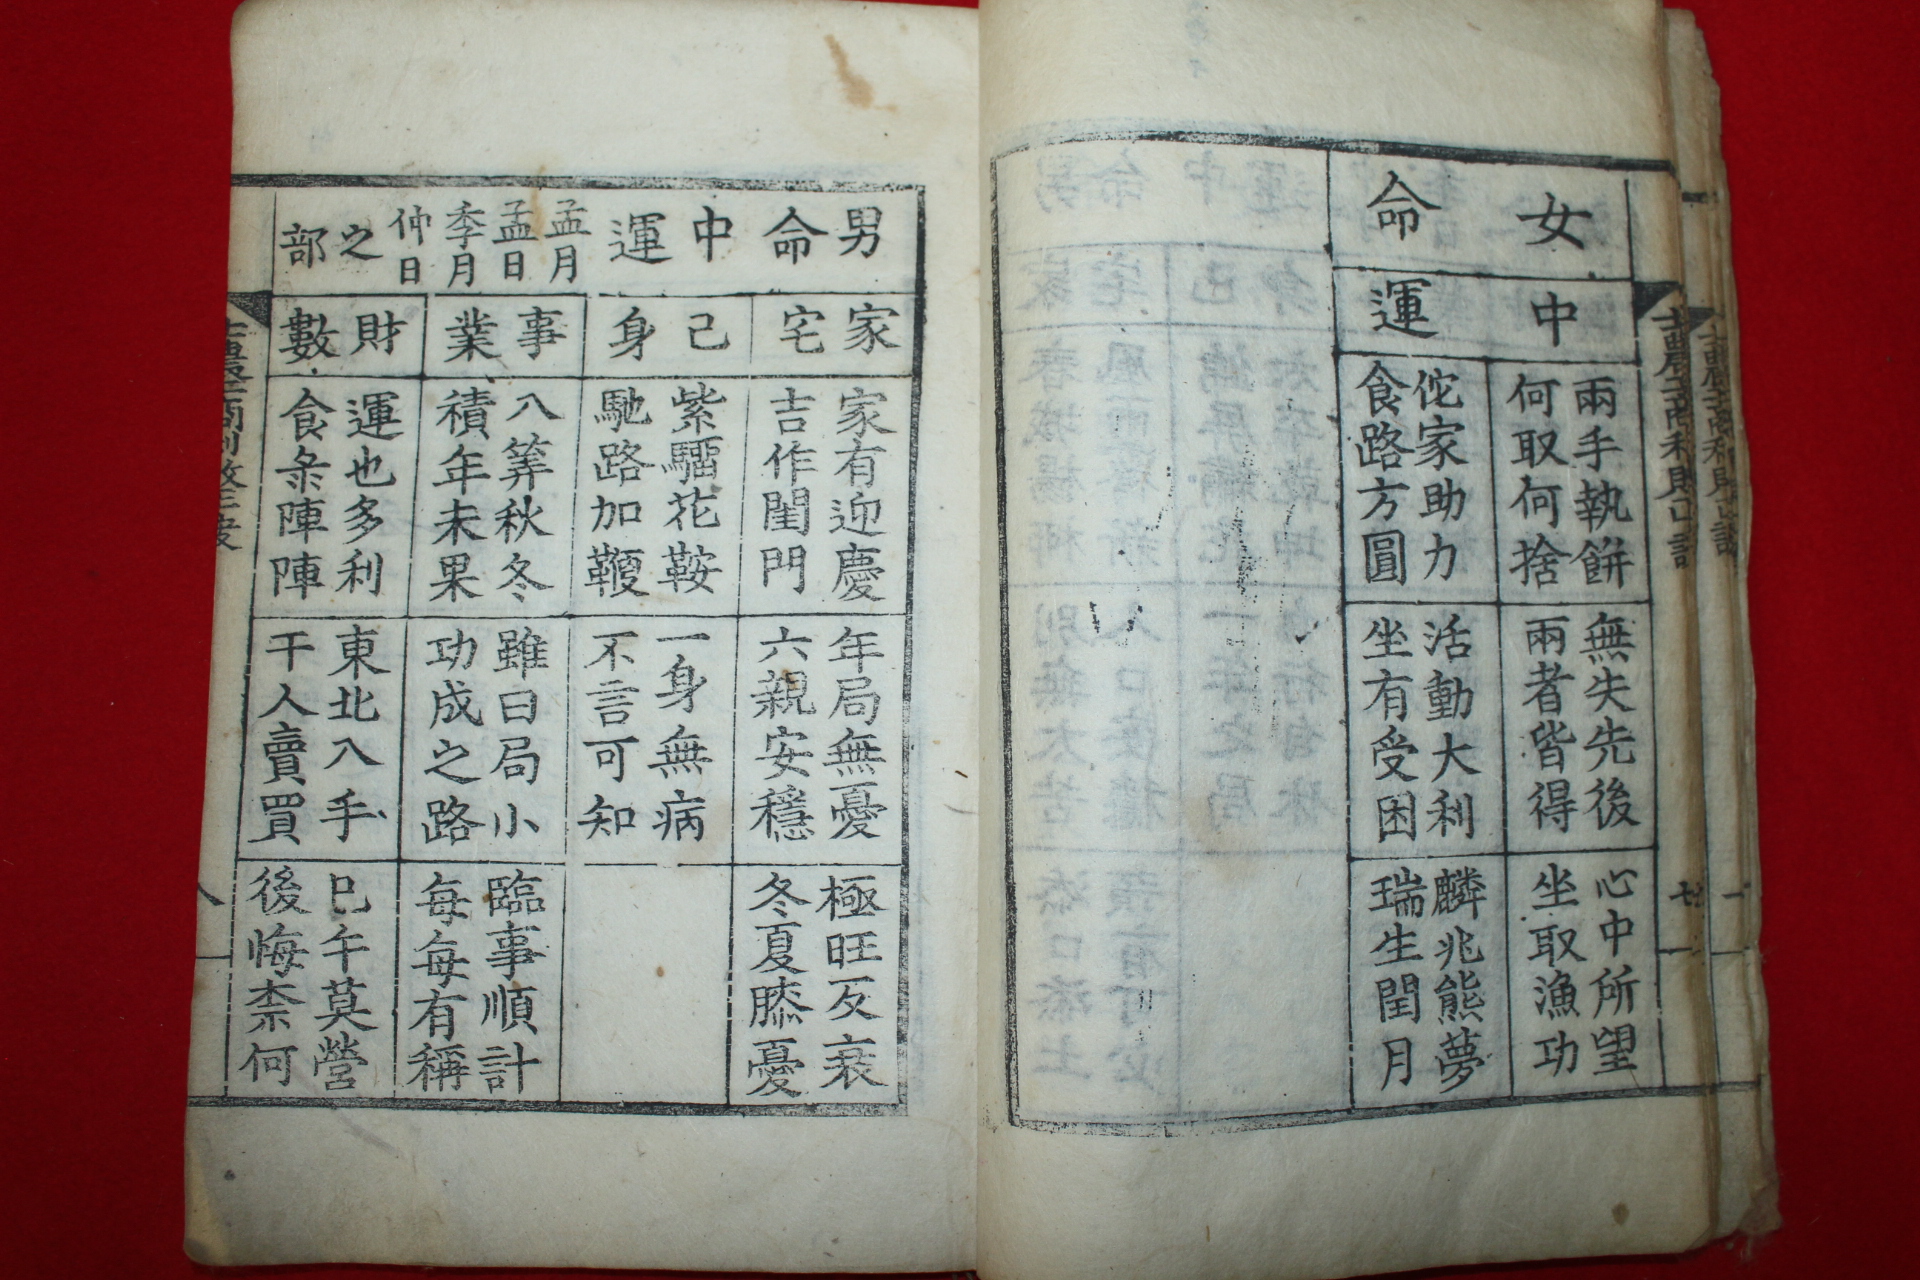 女命
中運
兩手執餅
何取何捨
無失先後
兩者皆得
心中所望
坐取漁功
佗家助力
食路方圓
活動大利
坐有受困
麟兆熊夢
瑞生閏月
士農工商利財口訣
男命
中運
孟月
孟日
季月
仲日
之部
家宅
家有迎慶
吉作閨門
年局無憂
六親安穩
極旺反衰
冬夏膝憂
己身
紫騮花鞍
馳路加鞭
一身無病
不言可知
事業
八筭秋冬
積年未果
雖曰局小
功成之路
臨事順計
每每有稱
財數
運也多利
食彖陣陣
東北入手
千人賣買
巳午莫營
後悔柰何
八